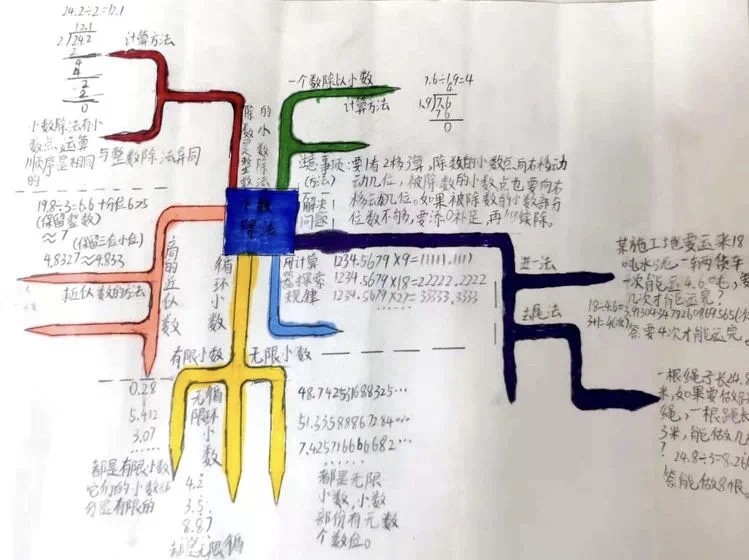 24.2÷2=12.1
12.1
2)24.2
2
4
4
2
2
0
计算方法
小数除法有小
数点,运算
顺序是相同与整数除法异同
的
除数是整数
的小数除法
一个数除以小数
计算方法
7.6÷1.9=4
4
1.9)7.6
7 6
0
注意事项:要1看2移3算,除数的小数点向右移动
(方法)动几位,被除数的小数点也要向右
解决 移动几位。如果被除数的小数部分
问题 位数不够,要添0补足,再 续除。
小数
除法
19.8÷3=6.6 十分位6≥5
(保留整数)
≈7
(保留三位小位)
4.8327≈4.833
近似数的方法
商的近似数
循环小数
用计算
器探索
规律
1234.5679×9=11111.1111
1234.5679×18=22222.2222
1234.5679×27=33333.3333
……
进一法
去尾法
某施工地要运来18
吨水泥,一车两货车
一次能运4.6吨,要
几次才能运完?
18÷4.6=3.91304347826086956
3+1=4(次)
答要4次才能运完。
一根绳子长24.8
米,如果要做
绳,一根跳长
3米,能做几
?
24.8÷3=8.26
答能做8根。
有限小数
无限小数
0.28
5.412
3.07
……
都是有限小数
它们的小数部
分是有限的
无限
循环小数
4.2
3.5
8.87
却是无限循
48.74253168832 5…
51.33588867284…
7.42571666682…
……
都是无限
小数,小数
部份有无数
个数位。